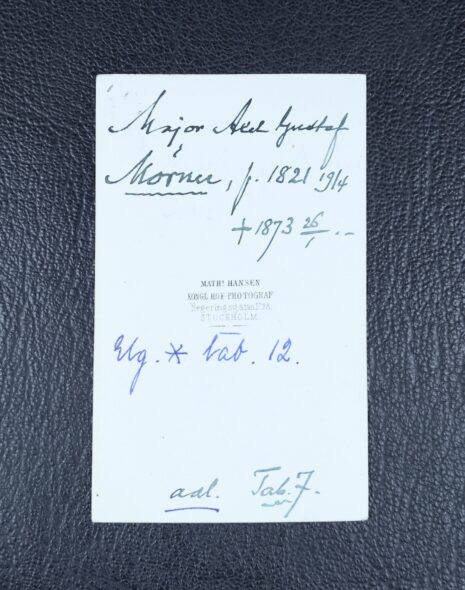 Major Axel Gustaf
Mörner, f. 1821 19/4
† 1873 26/1 . -
MATHS HANSEN
KONGL HOF-PHOTOGRAF
Regeringsgatan
STOCKHOLM.
Elg. * tab. 12.
adl. Tab. 7.